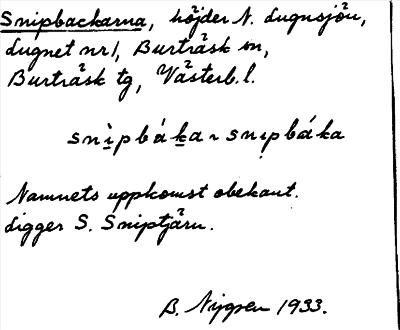 Snipbackarna, höjder N. Lugnsjön,
Lugnet nr 1, Burträsk sn,
Burträsk tg, Västerb. l.
snìpbáka ~ snipbáka
Namnets uppkomst obekant.
Ligger S. Sniptjärn.
B. Nygren 1933.